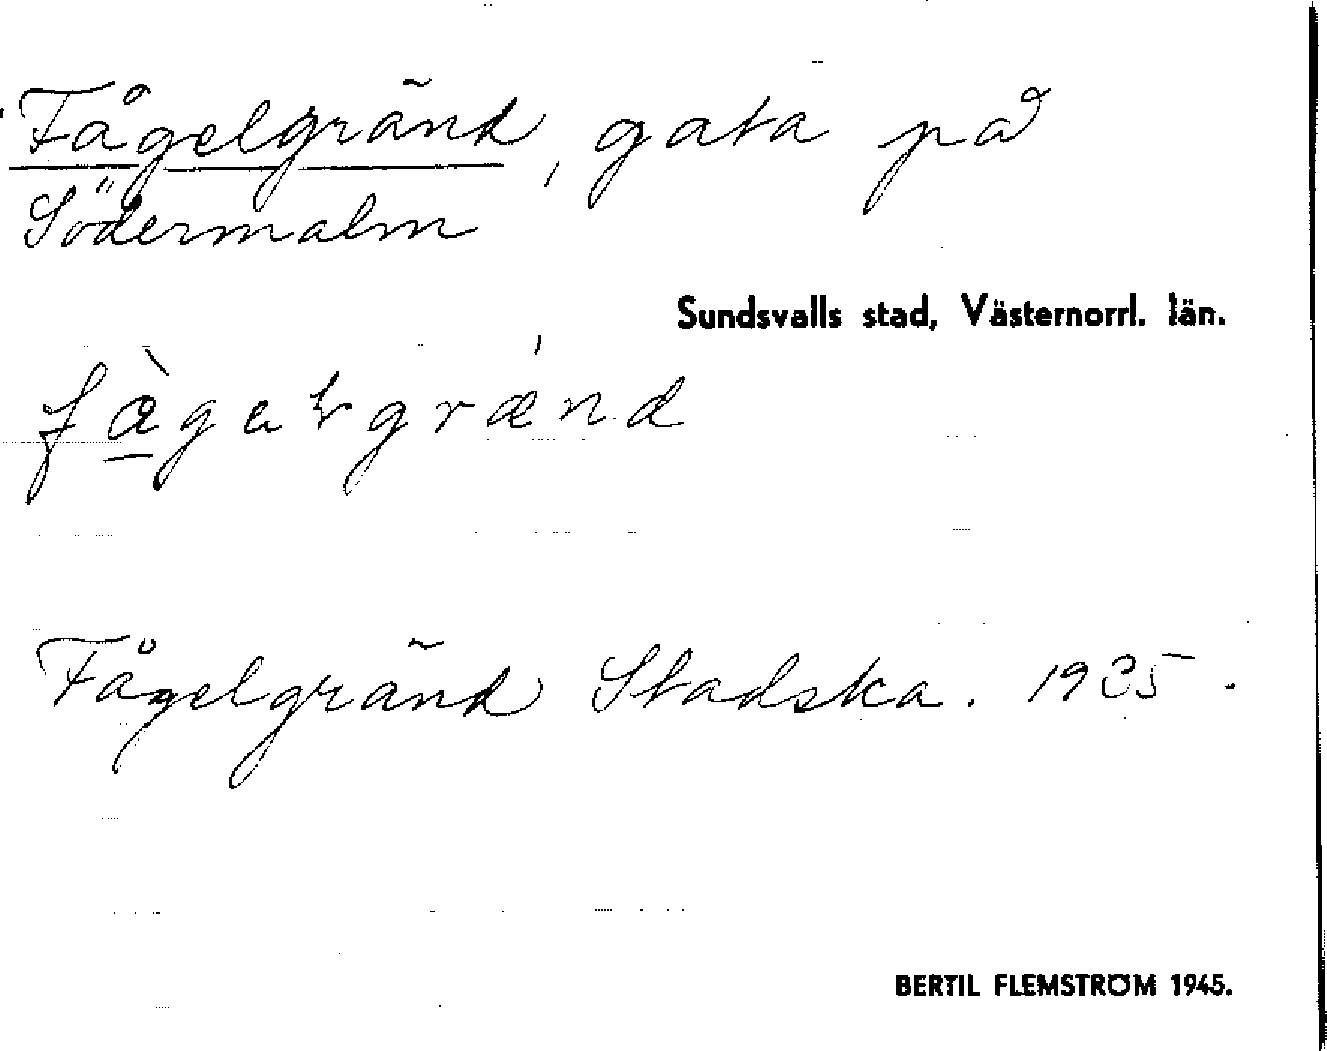 Fågelgränd, gata på
Södermalm
Sundsvalls stad, Västernorrl. län.
Fågelgränd Stadska. 1935.
BERTIL FLEMSTRÖM 1945.